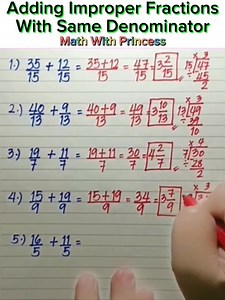 Adding Improper Fractions
With Same Denominator
Math With Princess
1.) 35/15 + 12/15 = 35+12/15 = 47/15 = 3 2/15 15)47 3 - 45 2
2.) 40/13 + 9/13 = 40+9/13 = 49/13 = 3 10/13 13)49 3 - 39 10
3.) 19/7 + 11/7 = 19+11/7 = 30/7 = 4 2/7 7)30 4 - 28 2
4.) 15/9 + 19/9 = 15+19/9 = 34/9 = 3 7/9 3
5.) 16/5 + 11/5 =